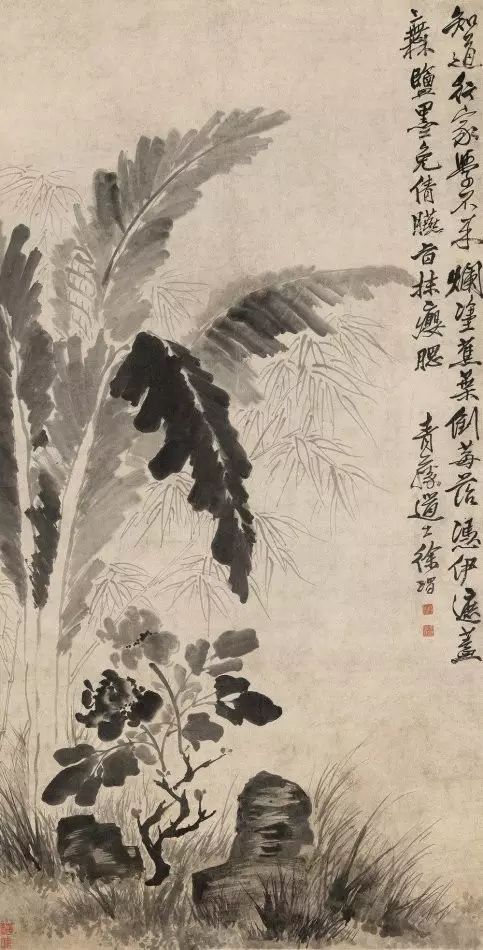 知道行家學不來爛塗蕉葉倒莓苔憑伊遮蓋
無鹽墨免倩臙旨抹癭腮 青藤道士徐渭